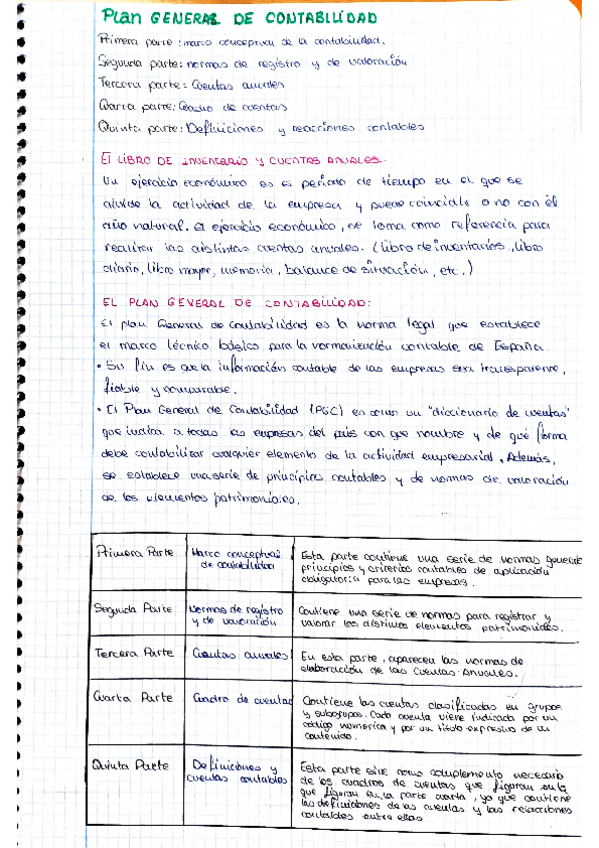 Plan GENERAL DE CONTABILIDAD
Primera parte: marco conceptual de la contabilidad.
Segunda parte: normas de registro y de valoración
Tercera parte: Cuentas anuales
Cuarta parte: Cuadro de cuentas
Quinta parte: Definiciones y relaciones contables
El LIBRO DE INVENTARIO Y CUENTAS ANUALES.
Un ejercicio económico es el período de tiempo en el que se
divide la actividad de la empresa y puede coincidir o no con el
año natural. El ejercicio económico, se toma como referencia para
realizar las distintas cuentas anuales. (libro de inventarios, libro
diario, libro mayor, memoria, balance de situación, etc.)
EL PLAN GENERAL DE CONTABILIDAD:
El plan General de Contabilidad es la norma legal que establece
el marco técnico básico para la normalización contable de España.
• Su fin es que la información contable de las empresas sea transparente,
fiable y comparable.
• El Plan General de Contabilidad (PGC) es como un "diccionario de cuentas"
que indica a todas las empresas del país con que nombre y de qué forma
debe contabilizar cualquier elemento de la actividad empresarial. Además,
se establece una serie de principios contables y de normas de valoración
de los elementos patrimoniales.
Primera Parte
Marco conceptual
de contabilidad
Esta parte contiene una serie de normas generale
principios y criterios contables de aplicación
obligatoria para las empresas.
Segunda Parte
Normas de registro
y de valoración
Contiene una serie de normas para registrar y
valorar los distintos elementos patrimoniales.
Tercera Parte
Cuentas anuales
En esta parte, aparecen las normas de
elaboración de las Cuentas Anuales.
Cuarta Parte
Cuadro de cuentas
Contiene las cuentas clasificadas en grupos
y subgrupos. Cada cuenta viene indicada por un
código numérico y por un título expresivo de su
contenido.
Quinta Parte
Definiciones y
cuentas contables
Esta parte sirve como complemento necesario
de los cuadros de cuentas que figuran en la
que figuran en la parte cuarta, ya que contiene
las definiciones de las cuentas y las relaciones
contables entre ellas